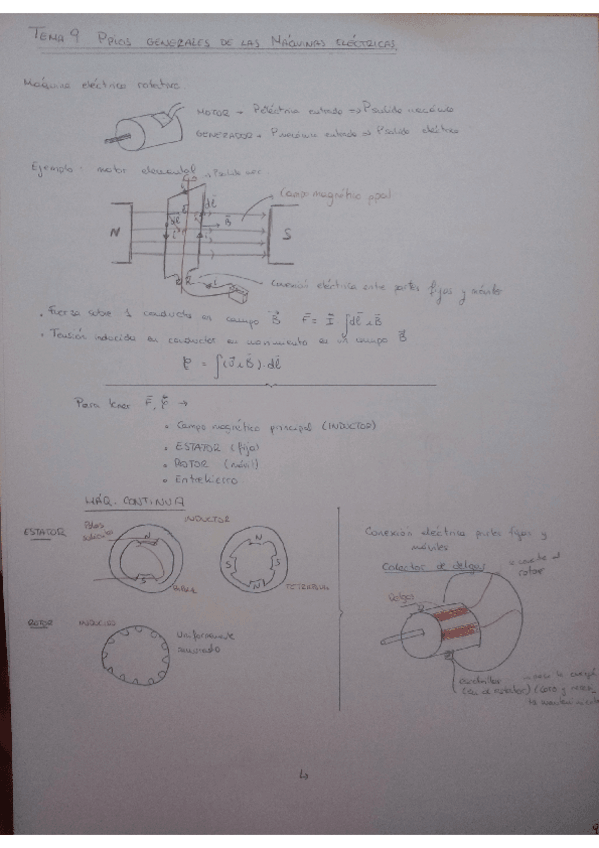 TEMA 9 PPIOS GENERALES DE LAS MÁQUINAS ELÉCTRICAS
Máquina eléctrica rotativa
MOTOR → P eléctrica entrada => P salida mecánica
GENERADOR → P mecánica entrada => P salida eléctrica
Ejemplo: motor elemental
P salida mec
Campo magnético ppal
N
dl
dl
B
S
i
i
Conexión eléctrica entre partes fijas y móviles
• Fuerza sobre 1 conductor en campo B F = I ∫dl x B
• Tensión inducida en conductor en movimiento en un campo B
= ∫(v x B)·dl
Para tener F, →
• Campo magnético principal (INDUCTOR)
• ESTATOR (fijo)
• ROTOR (móvil)
• Entrehierro
MÁQ. CONTINUA
ESTATOR
Polos salientes
INDUCTOR
N
S
N
S
S
N
TETRAPOLAR
ROTOR
INDUCIDO
Uniformemente ranurado
Conexión eléctrica partes fijas y móviles
Colector de delgas
conecta al rotor
Delgas
escobillas
(al estator)
9